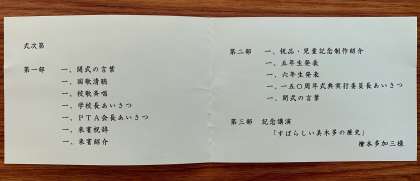 式次第
第一部
一、開式の言葉
一、国歌清聴
一、校歌斉唱
一、学校長あいさつ
一、PTA会長あいさつ
一、来賓祝辞
一、来賓紹介
第二部
一、祝品・児童記念制作紹介
一、五年生発表
一、六年生発表
一、一五〇周年式典実行委員長あいさつ
一、閉式の言葉
第三部 記念講演
「すばらしい美木多の歴史」
檜本多加三様